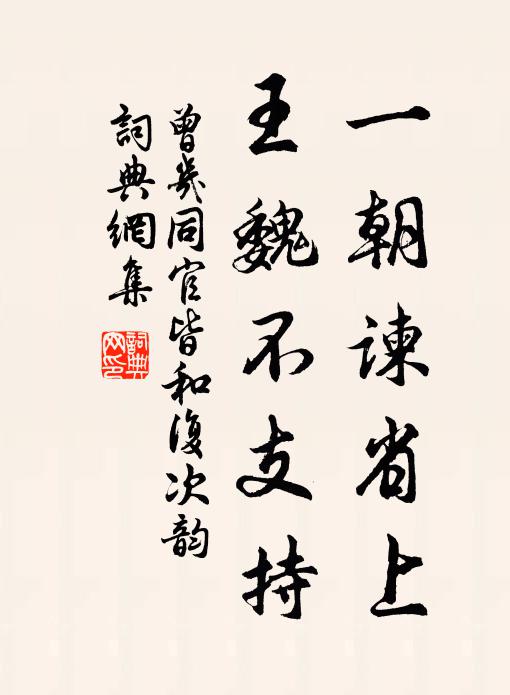 一朝諫省上
王魏不支持
曾幾同官皆和復次韵
詞典網集
詞典網印